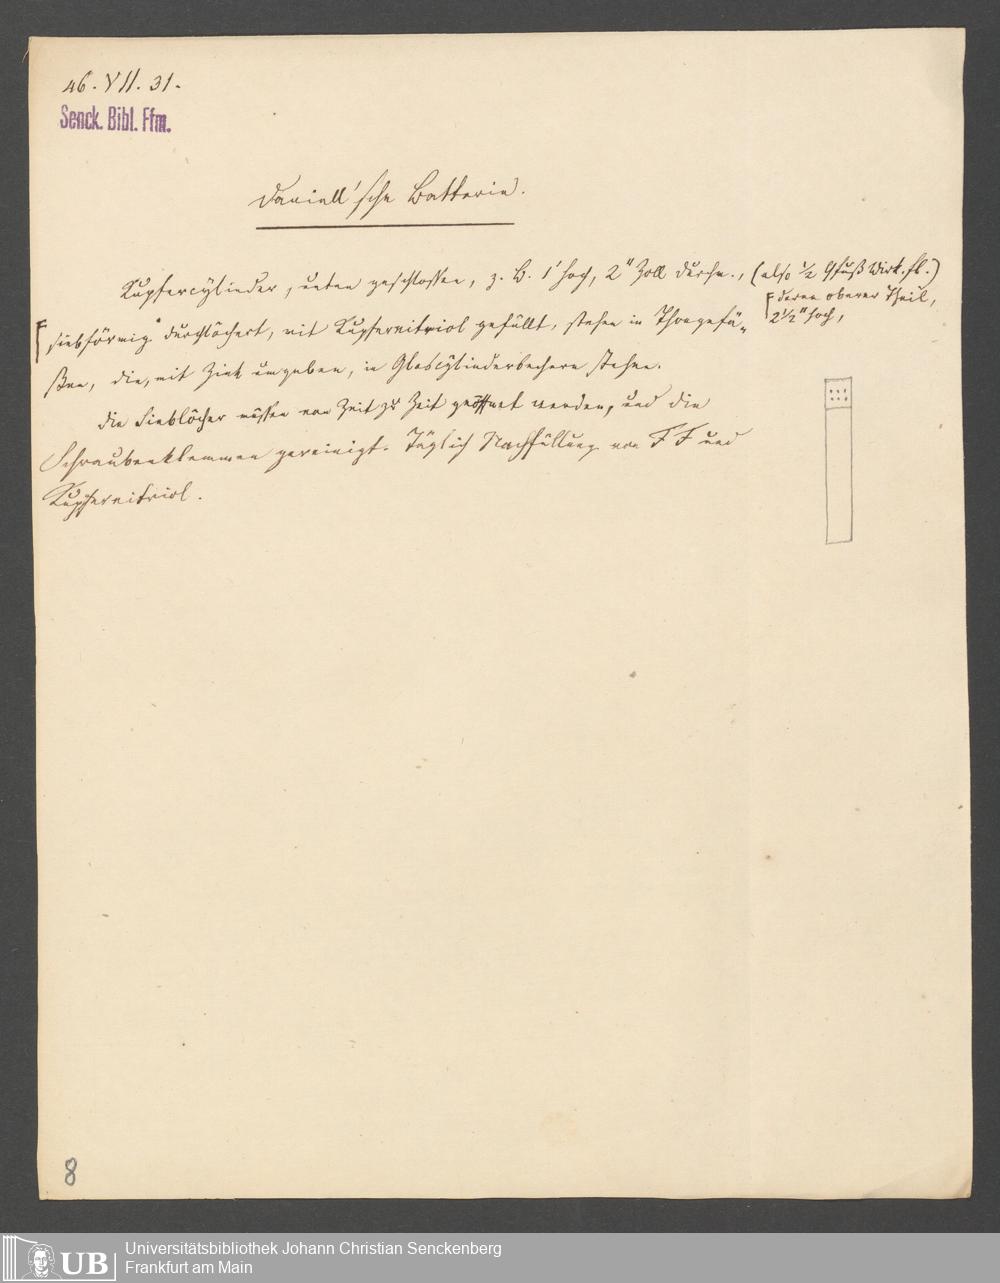 46. VII. 31.
Senck. Bibl. Ffm.
Daniell'sche Batterie.
Kupfercylinder, unten geschlossen, z. B. 1' hoch, 2" Zoll Durchm., (also ½ Qfuß Wirk. fl.)
deren oberer Theil,
2½" hoch,
siebförmig durchlöchert, mit Kupfervitriol gefüllt, stehen in Thongefä-
ßen, die, mit Zink umgeben, in Glascylinderbechern stehen.
Die Sieblöcher müssen von Zeit zu Zeit geöffnet werden, und die
Schraubenklemmen gereinigt. Täglich Nachfüllung von und
Kupfervitriol.
8
UB
Universitätsbibliothek Johann Christian Senckenberg
Frankfurt am Main